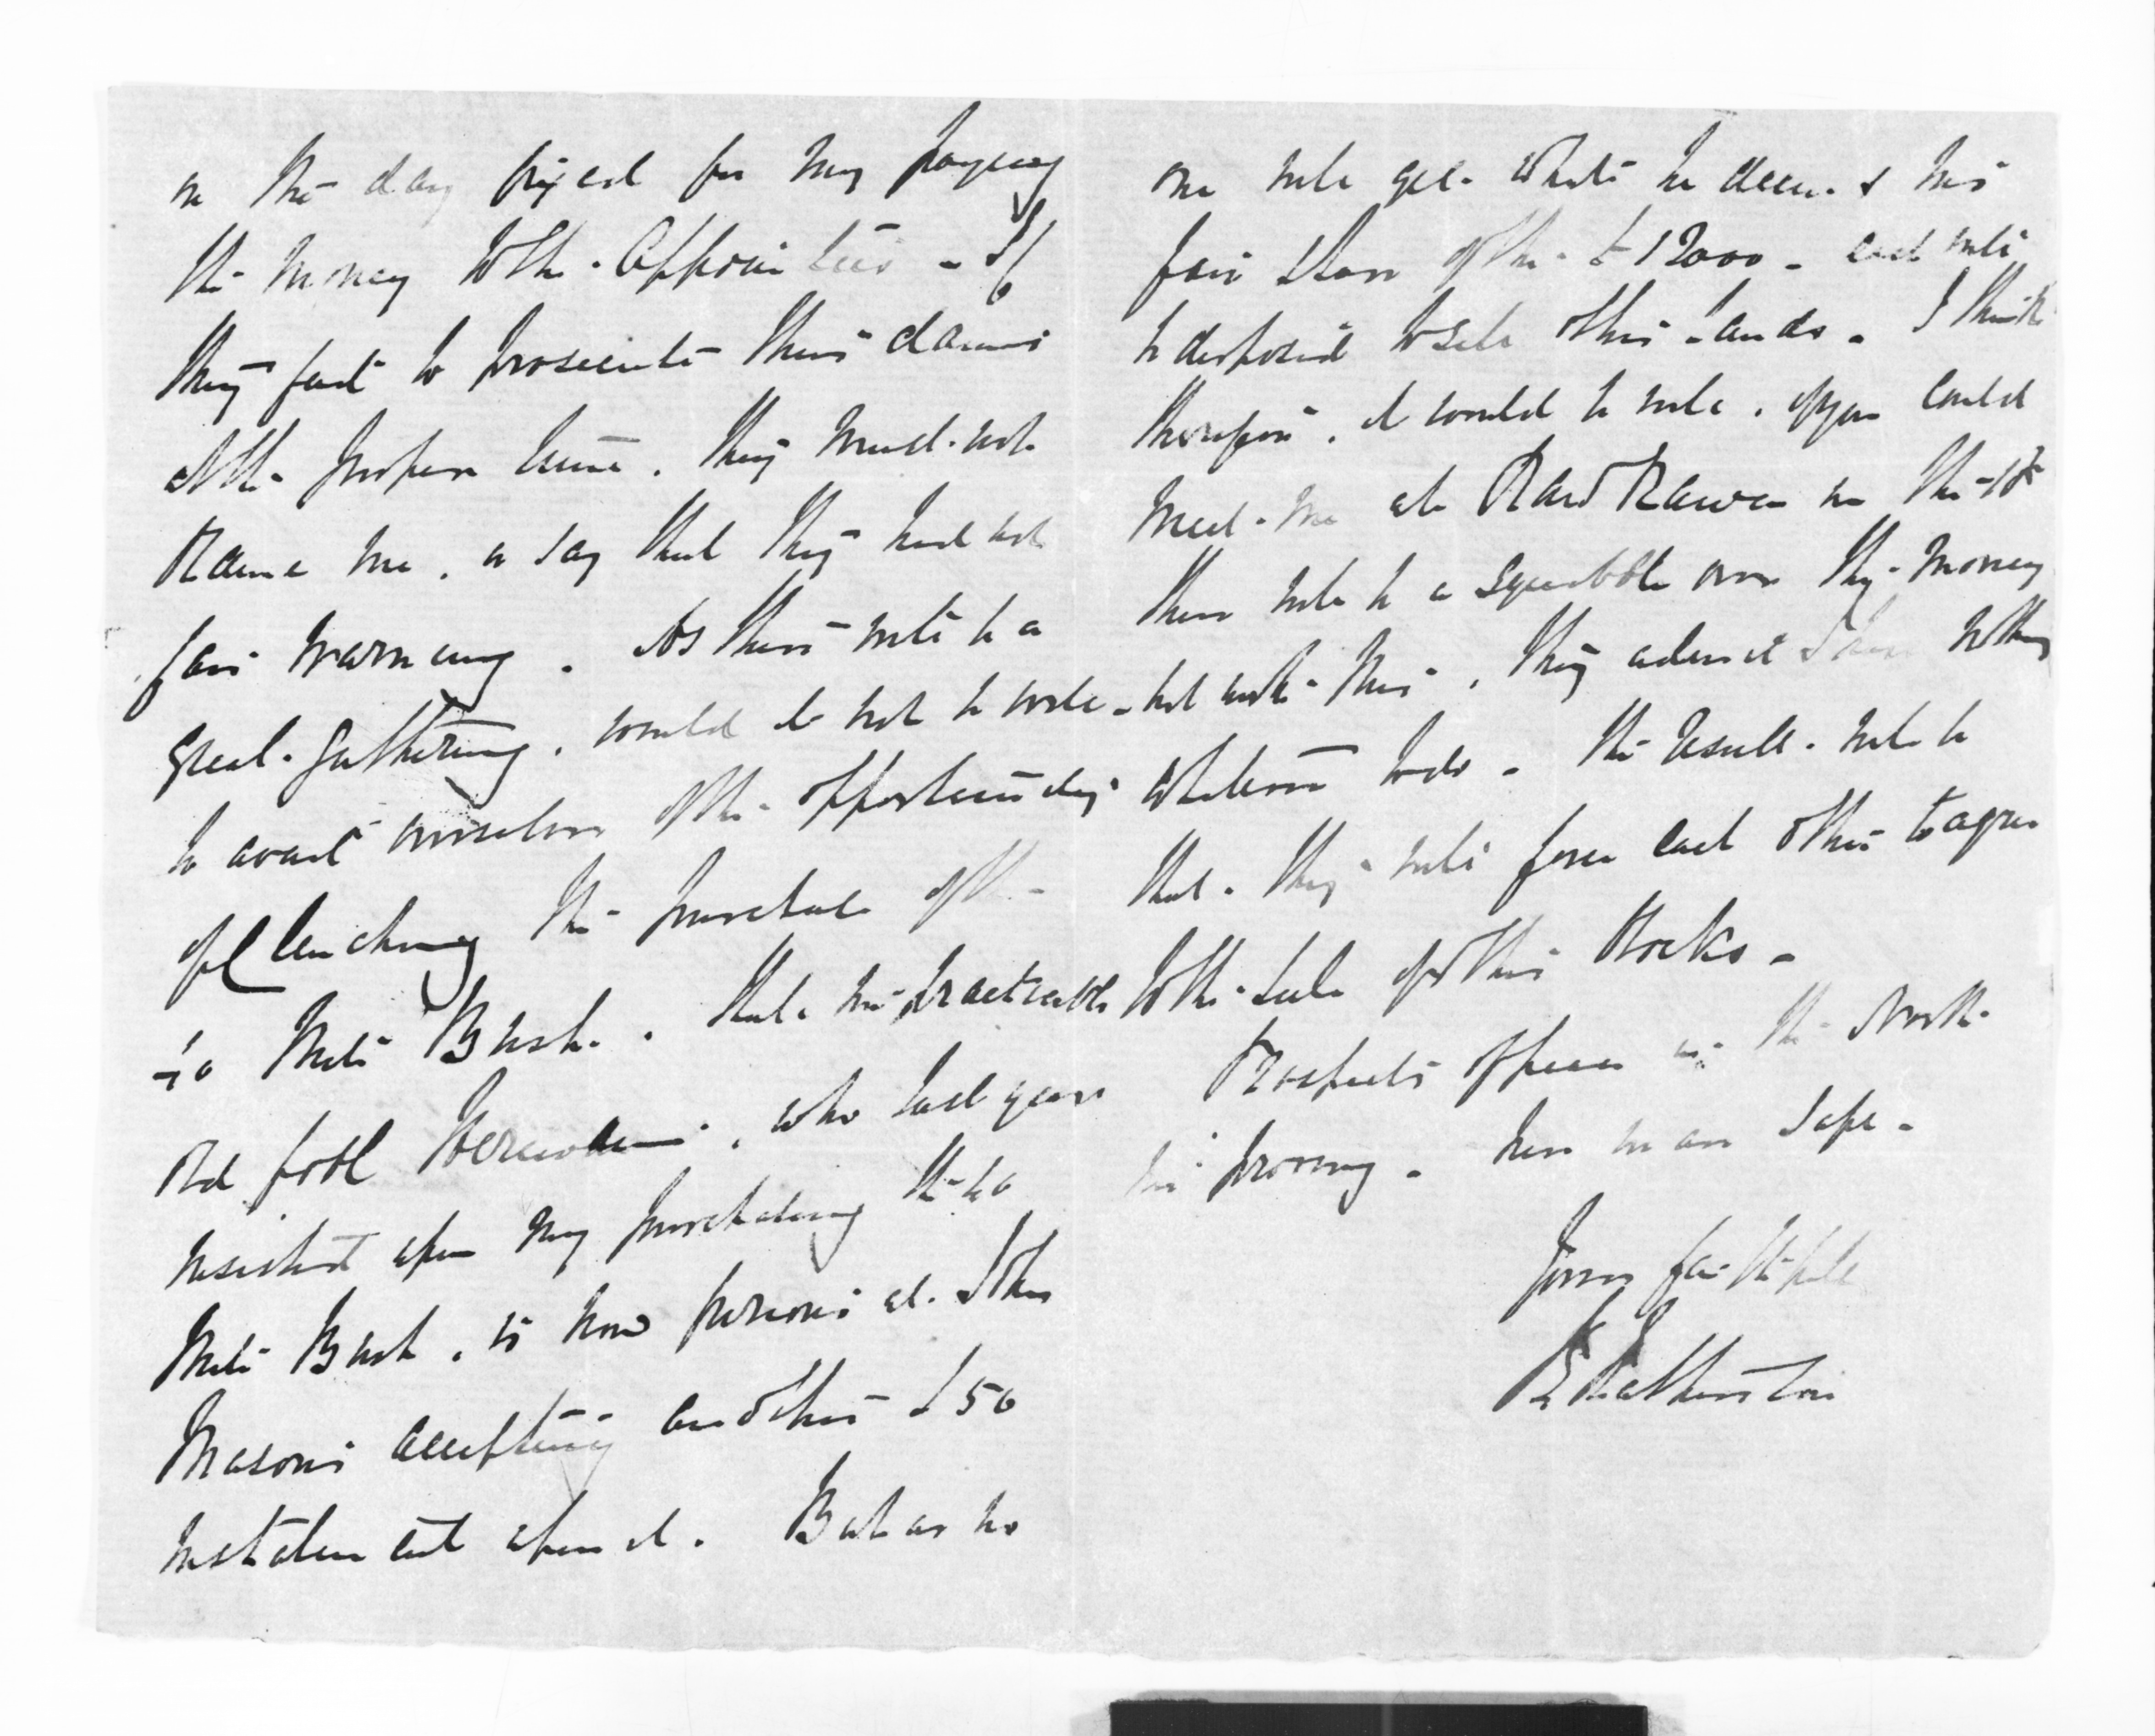 on the day fixed for my paying
the money to the - Apprai
they fail to prosecute their claims
at the proper time. They must not
blame me. or say that they had not
fair warning. As there will be a
great gathering. would it not be well
to avail ourselves of the opportunity
of clenching the purchase of the
70 Mile Bush. That impracticable
old fool, who last year
insisted upon my purchasing the 40
Mile Bush, is now furious at John
Masons accepting another £50
instalment upon it. But as no
one will get what he deems his
fair share of the £12000 - each will
be disposed to sell other lands. I think
therefore. it would be well. if you could
meet me at RauKawa on the 18th
There will be a squabble over the money
but with this. they admit I have nothing
whatever to do - The result will be
that they will force each other to agree
to the sale of other Blocks -
Prospects of peace in the North
improving. Here we are safe -
Yours faithfully